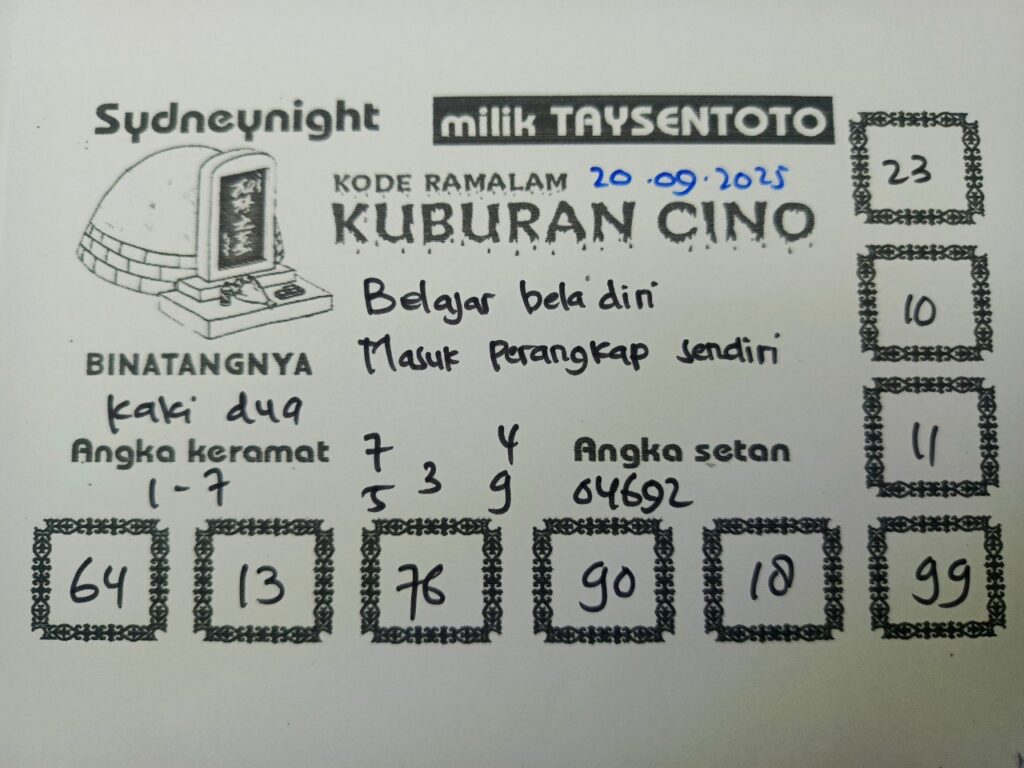 Sydneynight
milik TAYSENTOTO
23
KODE RAMALAM 20.09.2025
KUBURAN CINO
10
Belajar bela diri
Masuk perangkap sendiri
BINATANGNYA
kaki dua
11
Angka keramat
1-7
7 4
3
5 9
Angka setan
04692
64 13 76 90 18 99